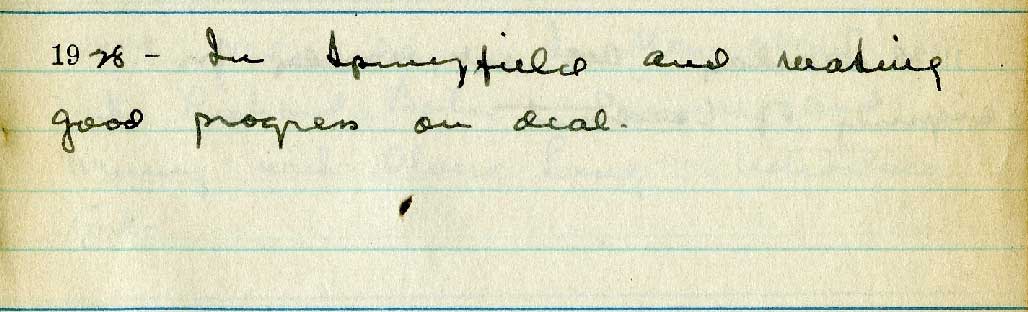 1928 - In Springfield and making
good progress on deal.